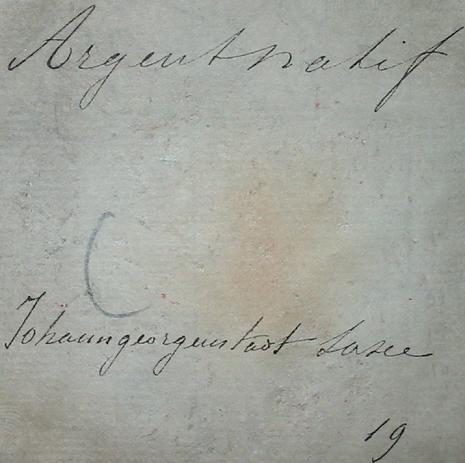 Argent natif
Johanngeorgenstadt Saxe
19